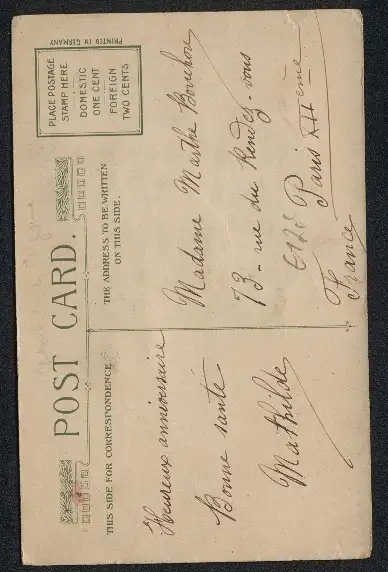 POST CARD.
THIS SIDE FOR CORRESPONDENCE
THE ADDRESS TO BE WRITTEN
ON THIS SIDE.
PLACE POSTAGE
STAMP HERE
DOMESTIC
ONE CENT
FOREIGN
TWO CENTS
PRINTED IN GERMANY
Heureux anniversaire
Bonne santé
Mathilde
Madame Marthe
73 - rue du Rendez-vous
Paris XIIeme
France